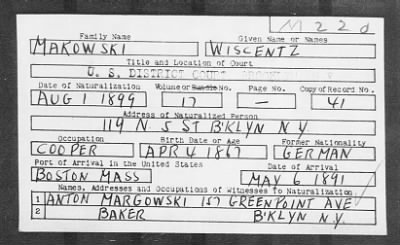 M220
Family Name Given Name or Names
MAKOWSKI WISCENTZ
Title and Location of Court
U. S. DISTRICT COURT
Date of Naturalization Volume or Bundle No. Page No. Copy of Record No.
AUG 1 1899 17 — 41
Address of Naturalized Person
119 N 5 ST B'KLYN N Y
Occupation Birth Date or Age Former Nationality
COOPER APR 4 1867 GERMAN
Port of Arrival in the United States Date of Arrival
BOSTON MASS MAY 6 1891
Names, Addresses and Occupations of Witnesses To Naturalization
1 ANTON MARGOWSKI 157 GREENPOINT AVE
2 BAKER B'KLYN N.Y.